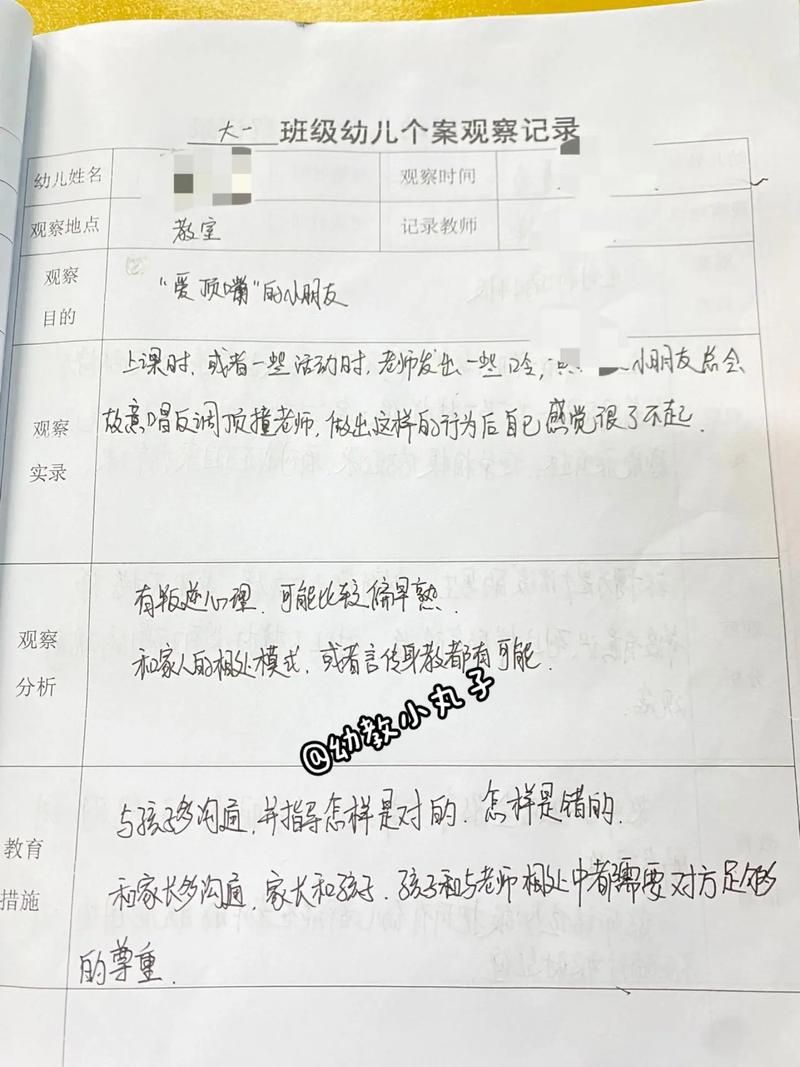 大一 班级幼儿个案观察记录
幼儿姓名 观察时间
观察地点 教室 记录教师
观察目的 “爱顶嘴”的小朋友
观察实录
上课时,或者一些活动时,老师发出一些口令, 小朋友总会
故意唱反调顶撞老师,做出这样的行为后自己感觉很了不起.
观察分析
有叛逆心理,可能比较偏早熟.
和家人的相处模式,或者言传身教都有可能.
@幼教小丸子
教育措施
与孩子多沟通,并指导怎样是对的.怎样是错的.
和家长多沟通,家长和孩子.孩子和与老师相处中都需要对方足够
的尊重.